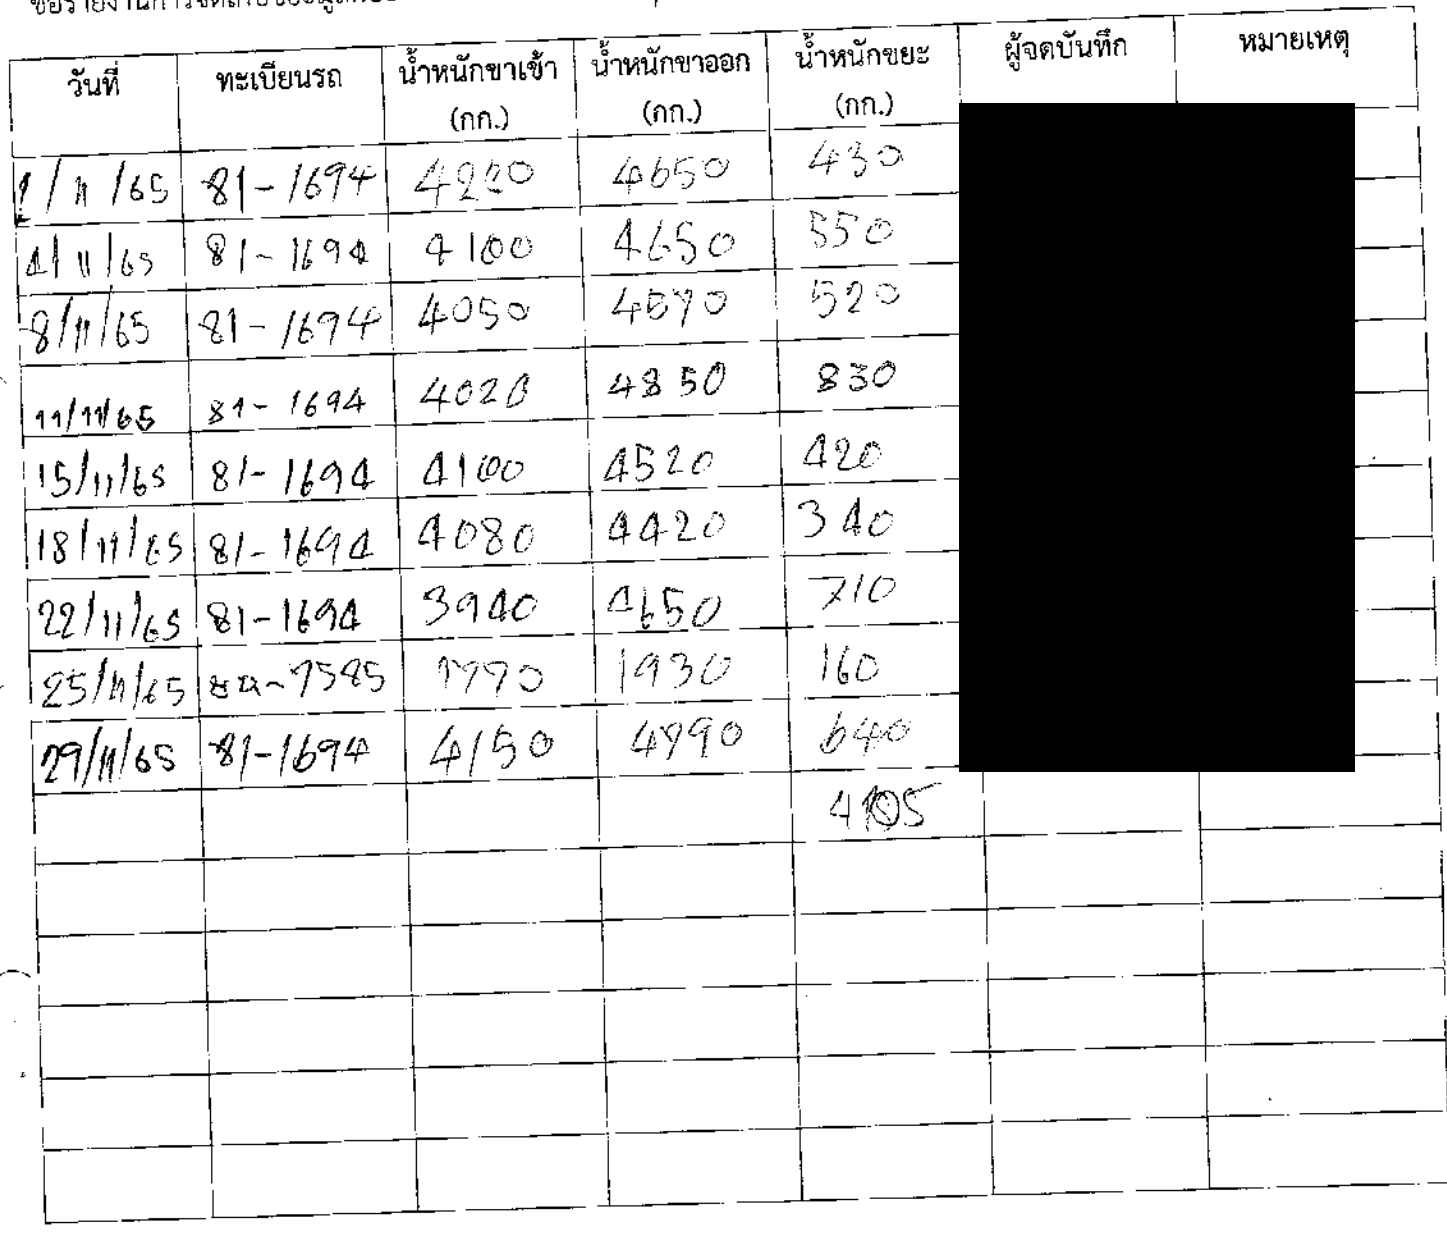 วันที่ ทะเบียนรถ น้ำหนักขาเข้า (กก.) น้ำหนักขาออก (กก.) น้ำหนักขยะ (กก.) ผู้จดบันทึก หมายเหตุ
1/11/65 81-1694 4220 4650 430
4/11/65 81-1694 4100 4650 550
8/11/65 81-1694 4050 4570 520
11/11/65 81-1694 4020 4850 830
15/11/65 81-1694 4100 4520 420
18/11/65 81-1694 4080 4420 340
22/11/65 81-1694 3940 4650 710
25/11/65 7585 1770 1930 160
29/11/65 81-1694 4150 4790 640